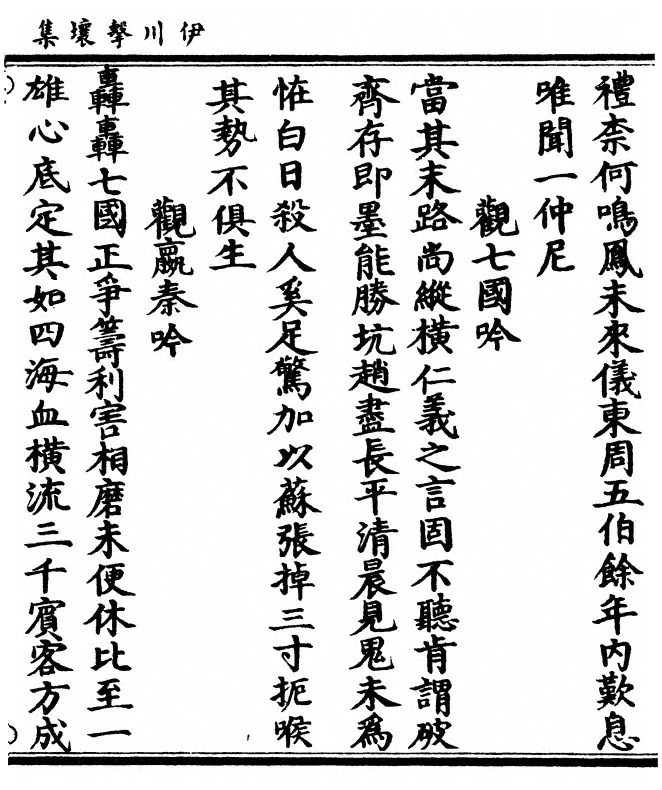 伊川擊壤集
禮柰何鳴鳳未來儀東周五伯餘年內歎息
唯聞一仲尼
觀七國吟
當其末路尚縱橫仁義之言固不聽肯謂破
齊存即墨能勝坑趙盡長平清晨見鬼未為
恠白日殺人奚足驚加以蘇張掉三寸扼喉
其勢不俱生
觀嬴秦吟
轟轟七國正爭籌利害相磨未便休比至一
雄心底定其如四海血橫流三千賓客方成